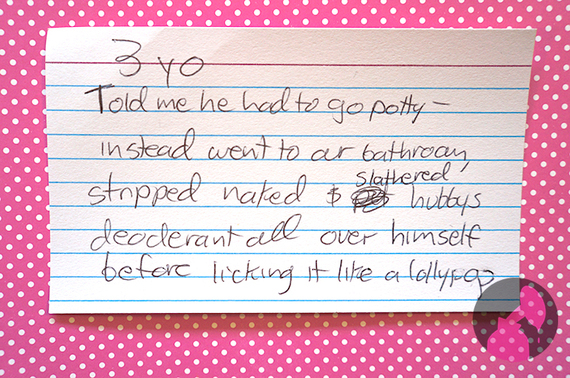 3 yo
Told me he had to go potty –
instead went to our bathroom,
stripped naked & slathered hubbys
deoderant all over himself
before licking it like a lollypop